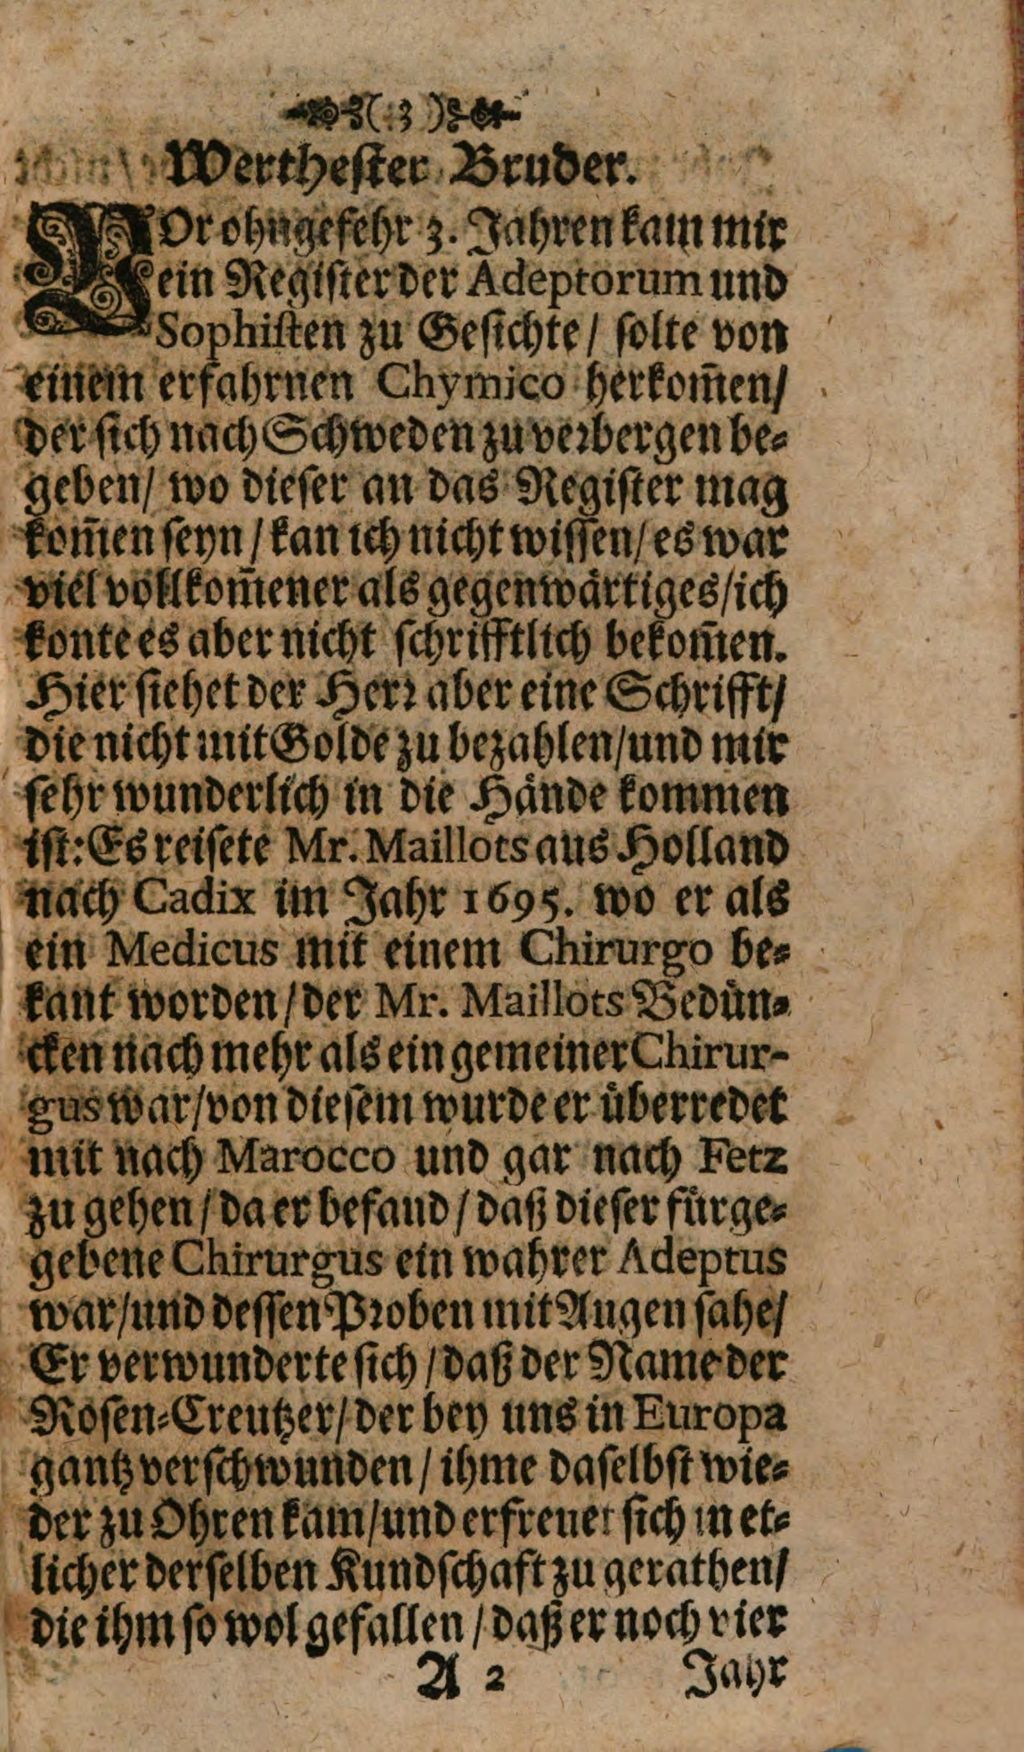 ( 3 )
Werthester Bruder.
VOr ohngefehr 3. Jahren kam mir
ein Register der Adeptorum und
Sophisten zu Gesichte / solte von
einem erfahrnen Chymico herkom̃en /
der sich nach Schweden zu verbergen be-
geben / wo dieser an das Register mag
kom̃en seyn / kan ich nicht wissen / es war
viel vollkom̃ener als gegenwärtiges / ich
konte es aber nicht schrifftlich bekom̃en.
Hier siehet der Herr aber eine Schrifft /
die nicht mit Golde zu bezahlen / und mir
sehr wunderlich in die Hände kommen
ist: Es reisete Mr. Maillots aus Holland
nach Cadix im Jahr 1695. wo er als
ein Medicus mit einem Chirurgo be-
kant worden / der Mr. Maillots Bedün-
cken nach mehr als ein gemeiner Chirur-
gus war / von diesem wurde er überredet
mit nach Marocco und gar nach Fetz
zu gehen / da er befand / daß dieser fürge-
gebene Chirurgus ein wahrer Adeptus
war / und dessen Proben mit Augen sahe /
Er verwunderte sich / daß der Name der
Rosen-Creutzer / der bey uns in Europa
gantz verschwunden / ihme daselbst wie-
der zu Ohren kam / und erfreuet sich in et-
licher derselben Kundschaft zu gerathen /
die ihm so wol gefallen / daß er noch vier
A 2 Jahr